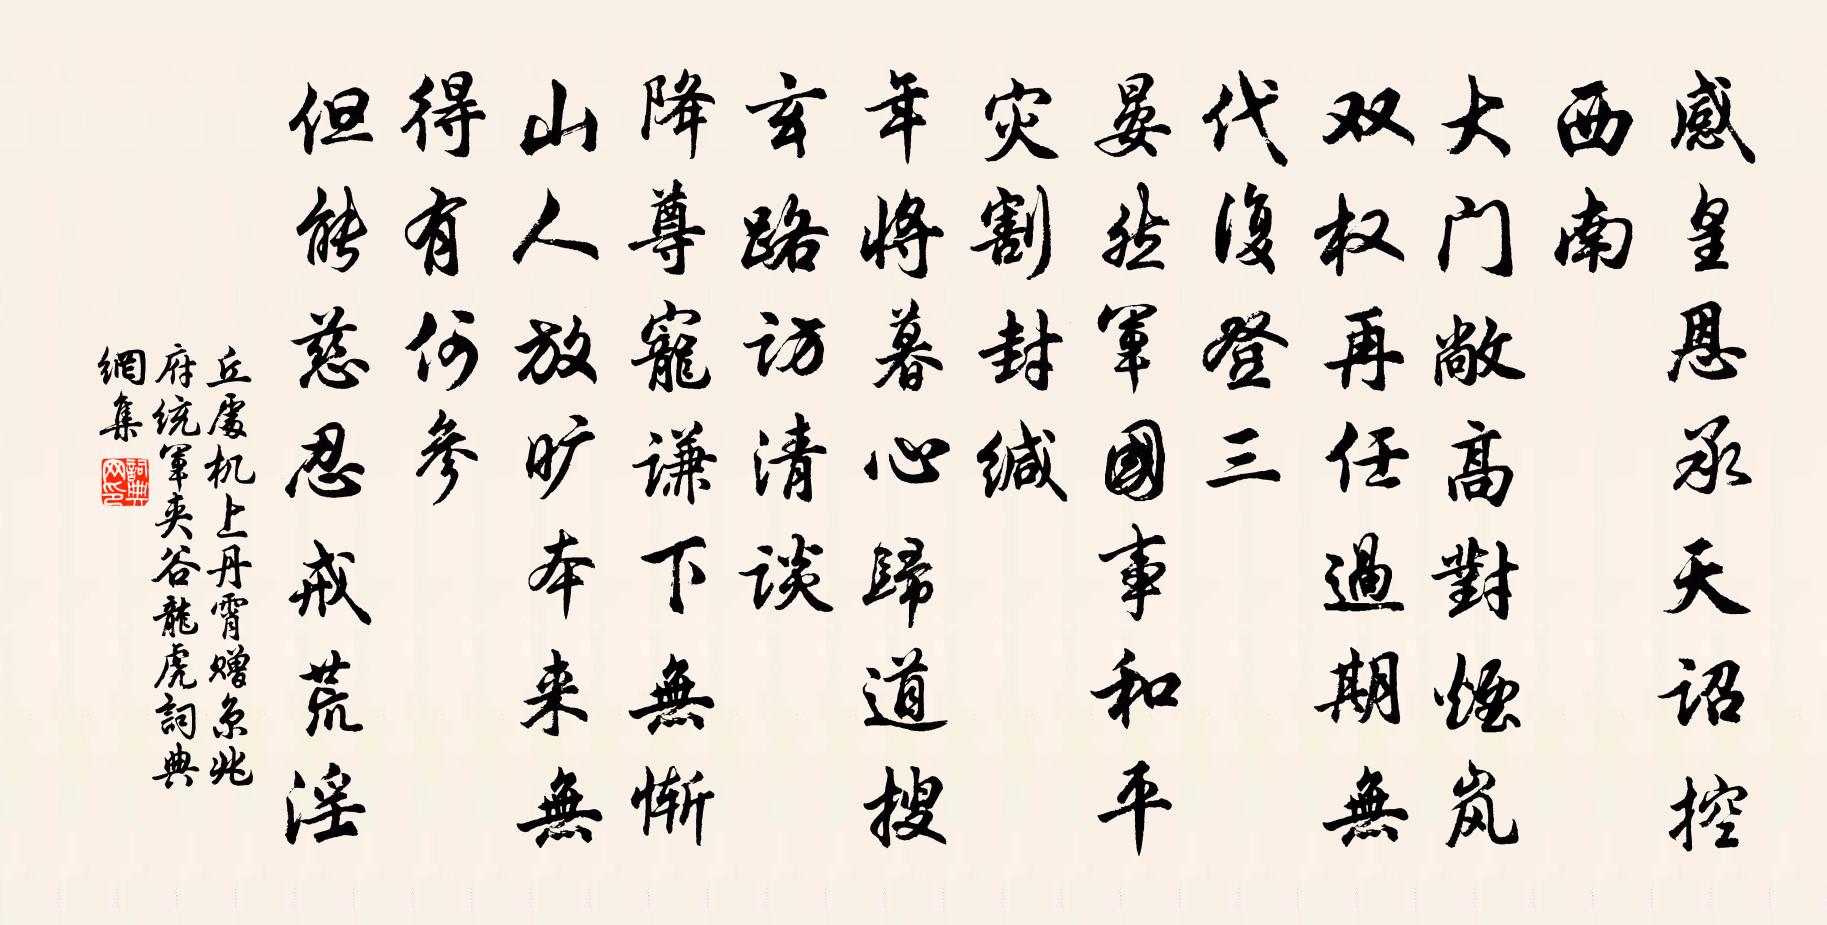 感皇恩承天詔控
西南
大门敞高對煙岚
双权再任過期無
代復登三
晏然軍國事和平
灾割封缄
年将暮心歸道搜
玄路访清谈
降尊寵谦下無慚
山人放旷本来無
得有何參
但能慈忍戒荒淫
丘處机上丹霄赠京兆
府统軍夹谷龍虎詞典
網集
詞典網印